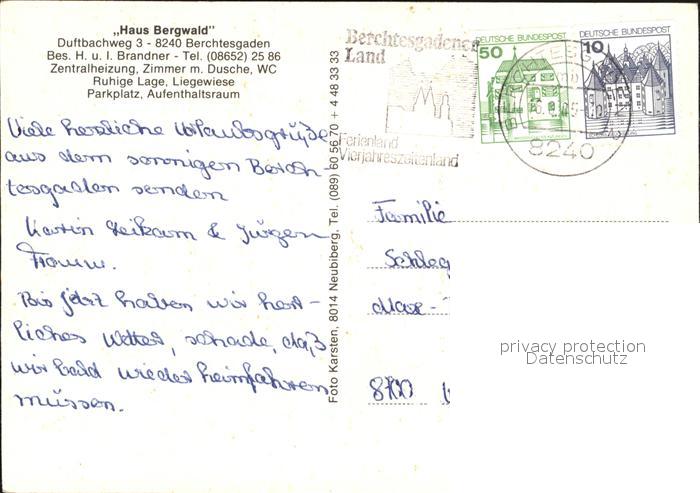 „Haus Bergwald"
Duftbachweg 3 - 8240 Berchtesgaden
Bes. H. u. I. Brandner - Tel. (08652) 25 86
Zentralheizung, Zimmer m. Dusche, WC
Ruhige Lage, Liegewiese
Parkplatz, Aufenthaltsraum
Viele herzliche Urlaubsgrüße
aus dem sonnigen Berch-
tesgaden senden
Karin & Jürgen
Bis jetzt haben wir herr-
liches Wetter, schade, daß
wir bald wieder heimfahren
müssen.
Foto Karsten, 8014 Neubiberg, Tel. (089) 60 56 70 + 4 48 33 33
Berchtesgadener
Land
Ferienland
Vierjahreszeitenland
50
DEUTSCHE BUNDESPOST
10
DEUTSCHE BUNDESPOST
8240
Familie
Schleg
Max-
privacy protection
Datenschutz